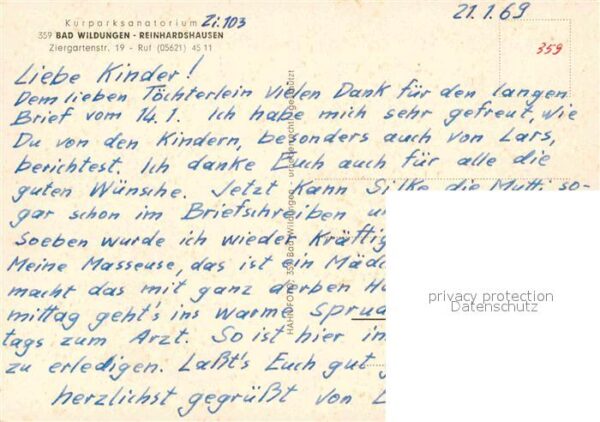 Kurparksanatorium Zi. 103
359 BAD WILDUNGEN - REINHARDSHAUSEN
Ziergartenstr. 19 - Ruf (05621) 45 11
21.1.69
359
Liebe Kinder!
Dem lieben Töchterlein vielen Dank für den langen
Brief vom 14.1. Ich habe mich sehr gefreut, wie
Du von den Kindern, besonders auch von Lars,
berichtest. Ich danke Euch auch für alle die
guten Wünsche. Jetzt kann Silke die Mutti so-
gar schon im Briefschreiben
Soeben wurde ich wieder kräftig
Meine Masseuse, das ist ein
macht das mit ganz derben
mittag geht's ins warme
tags zum Arzt. So ist hier
zu erledigen. Laßt's Euch gut
herzlichst gegrüßt von
HAHN-FOTO, 359 Bad Wildungen - urheberrechtl. geschützt
privacy protection
Datenschutz